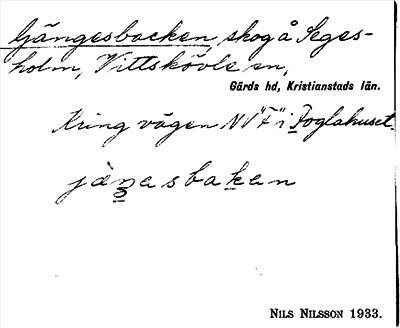 Gängesbacken, skog å Seges-
holm, Vittskövle sn,
Gärds hd, Kristianstads län.
Kring vägen NV "F" i Foglahuset.
jæŋəsbakən
NILS NILSSON 1933.